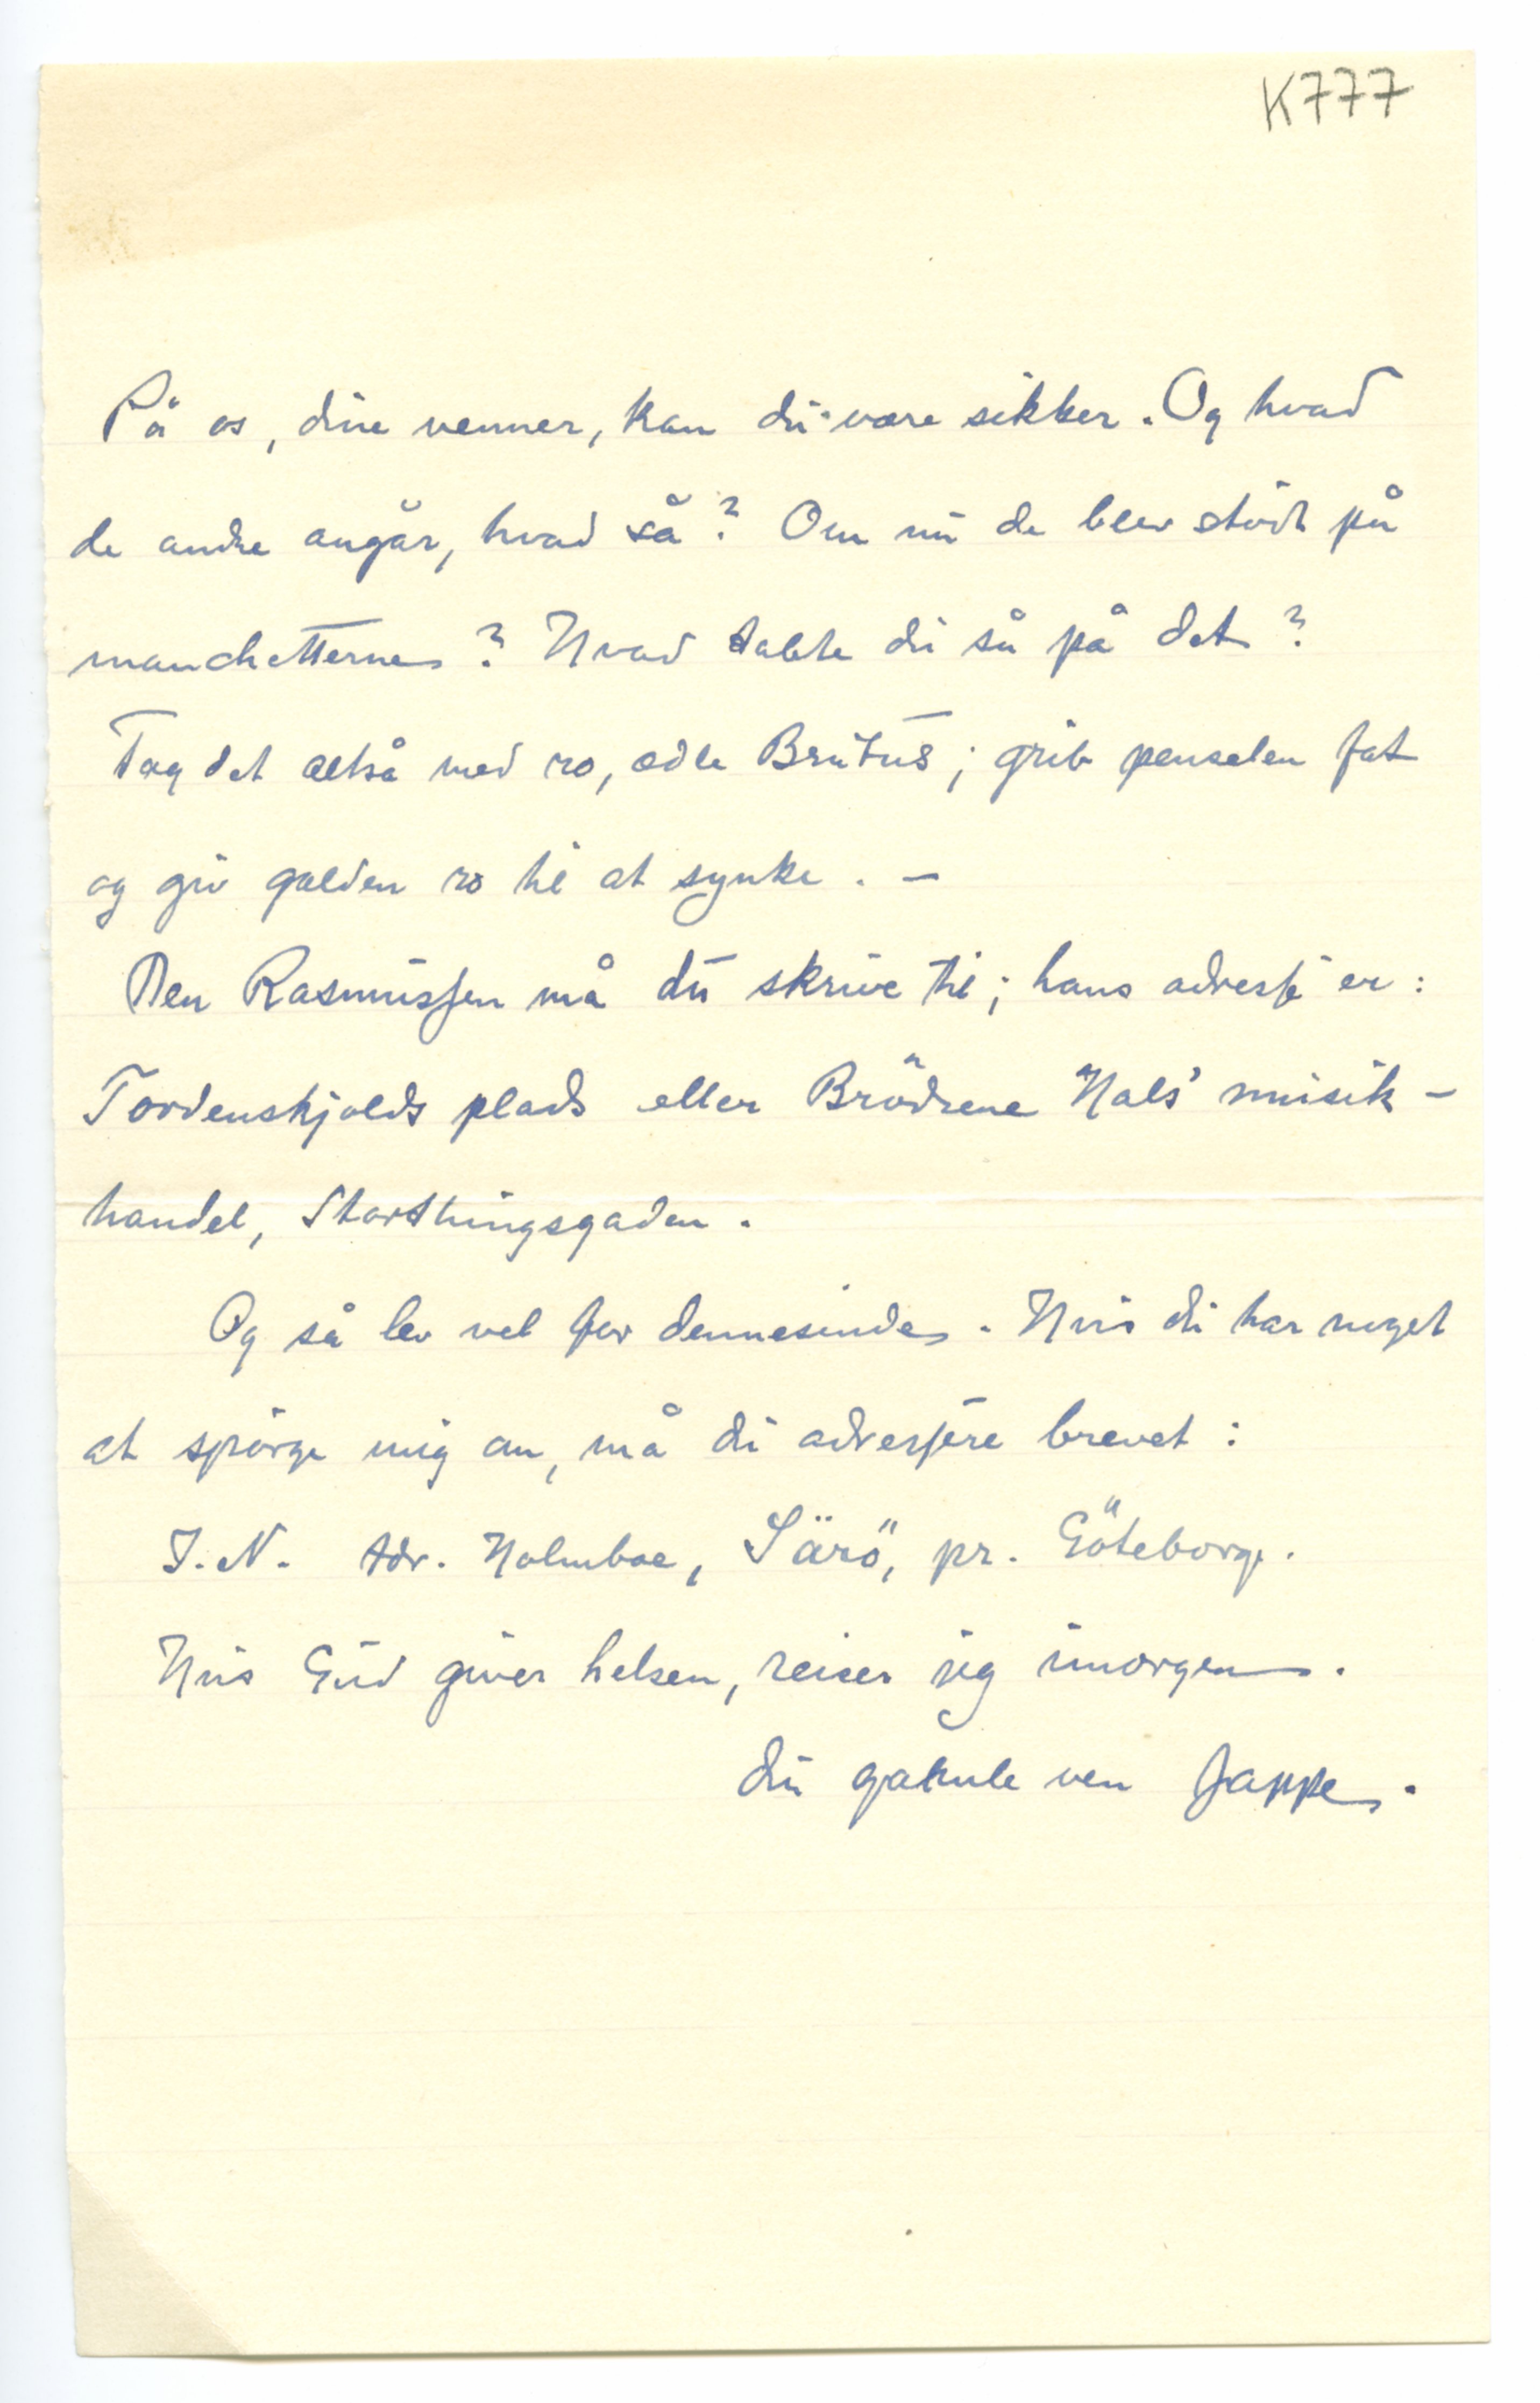 K777
På os, dine venner, kan du være sikker. Og hvad
de andre angår, hvad så? Om nu de blev stödt på
manchetterne? Hvad tabte du så på det?
Tag det altså med ro, ædle Brutus; grib penselen fat
og giv galden ro til at synke. –
Den Rasmussen må du skrive til; hans adresse er:
Tordenskjolds plads eller Brödrene Hals' musik-
handel, Storthingsgaden.
Og så lev vel for dennesinde. Hvis du har noget
at spörge mig om, må du adressere brevet:
J. N. Adr. Holmboe, Särö, pr. Göteborg.
Hvis Gud giver helsen, reiser jeg imorgen.
din ven Jappe.